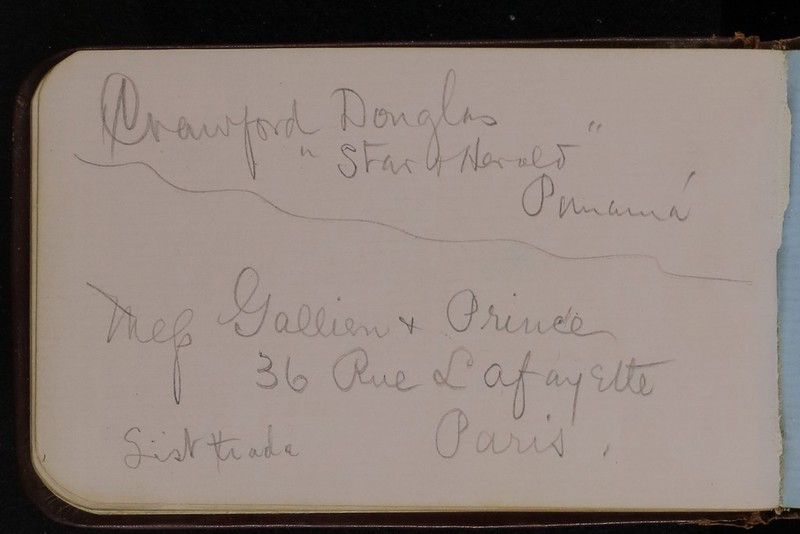 Crawford Douglas
"Star & Herald"
Panamá
Mess Gallien + Prince
36 Rue Lafayette
Paris.
List trade